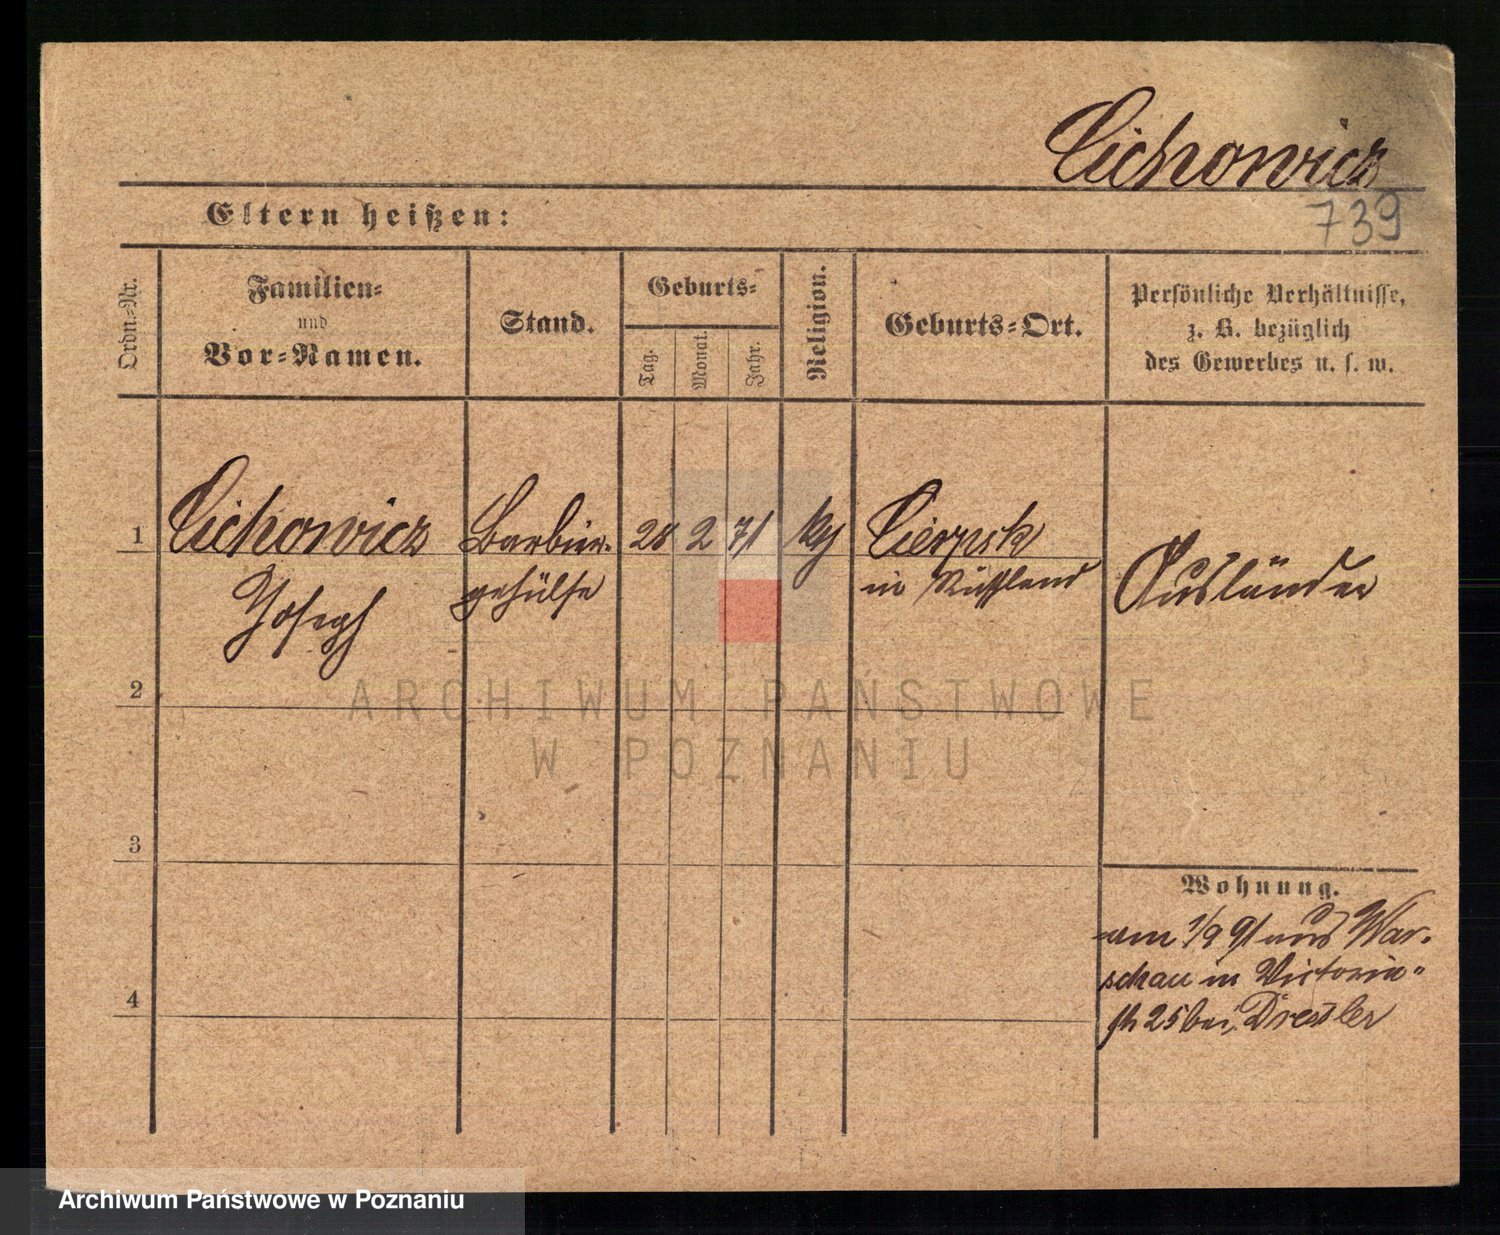 Cichowicz
739
Eltern heißen:
Ordn.-Nr.
Familien-
und
Vor-Namen.
Stand.
Geburts-
Tag.
Monat.
Jahr.
Religion.
Geburts-Ort.
Persönliche Verhältnisse,
z. B. bezüglich
des Gewerbes u. s. w.
1 Cichowicz Barbier- 28 2 71 Cierpsk
Joseph gehülfe in Russland Ausländer
2
ARCHIWUM PAŃSTWOWE
W POZNANIU
3
Wohnung.
am 1/9 91 aus War-
schau in Victoria-
4
25 bei Dressler
Archiwum Państwowe w Poznaniu